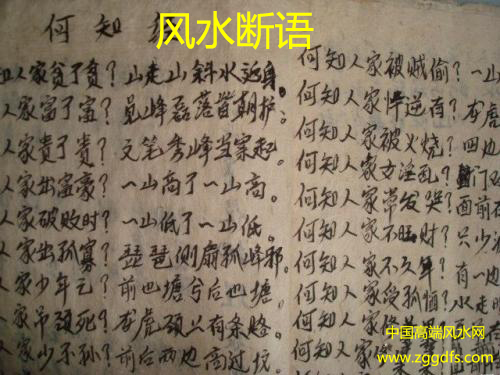 何知
风水断语
知人家贫了贫？山走山斜水返身。
人家富了富？员峰磊落皆朝护。
人家贵了贵？文笔秀峰当案起。
人家出富豪？一山高了一山高。
人家破败时？一山低了一山低。
人家出孤寡？琵琶侧扇孤峰邪。
人家少年亡？前也塘兮后也塘。
家吊颈死？龙虎颈上有条路。
人家少子孙？前后两边高过坟。
何知人家被贼偷？一山
何知人家忤逆有？龙虎
何知人家被火烧？四边
何知人家女淫乱？门对
何知人家常发哭？面前
何知人家不旺财？只少
何知人家不久年？有一边
何知人家受孤恓？水走
何知人家修善
何知人家
中国高端风水网
www.zggdfs.com